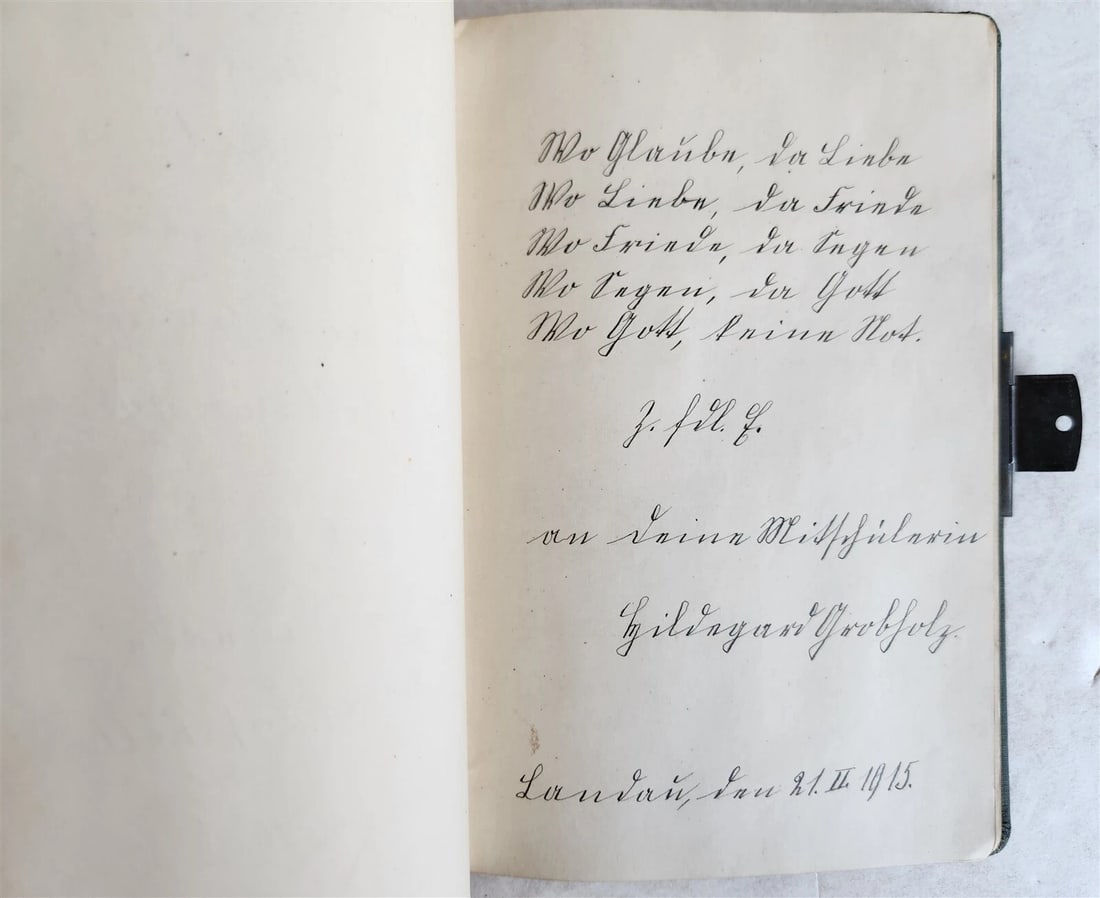 Wo Glaube, da Liebe
Wo Liebe, da Friede
Wo Friede, da Segen
Wo Segen, da Gott
Wo Gott, keine Not.
Z. fdl. E.
an deine Mitschülerin
Hildegard Grobholz.
Landau, den 21. II. 1915.